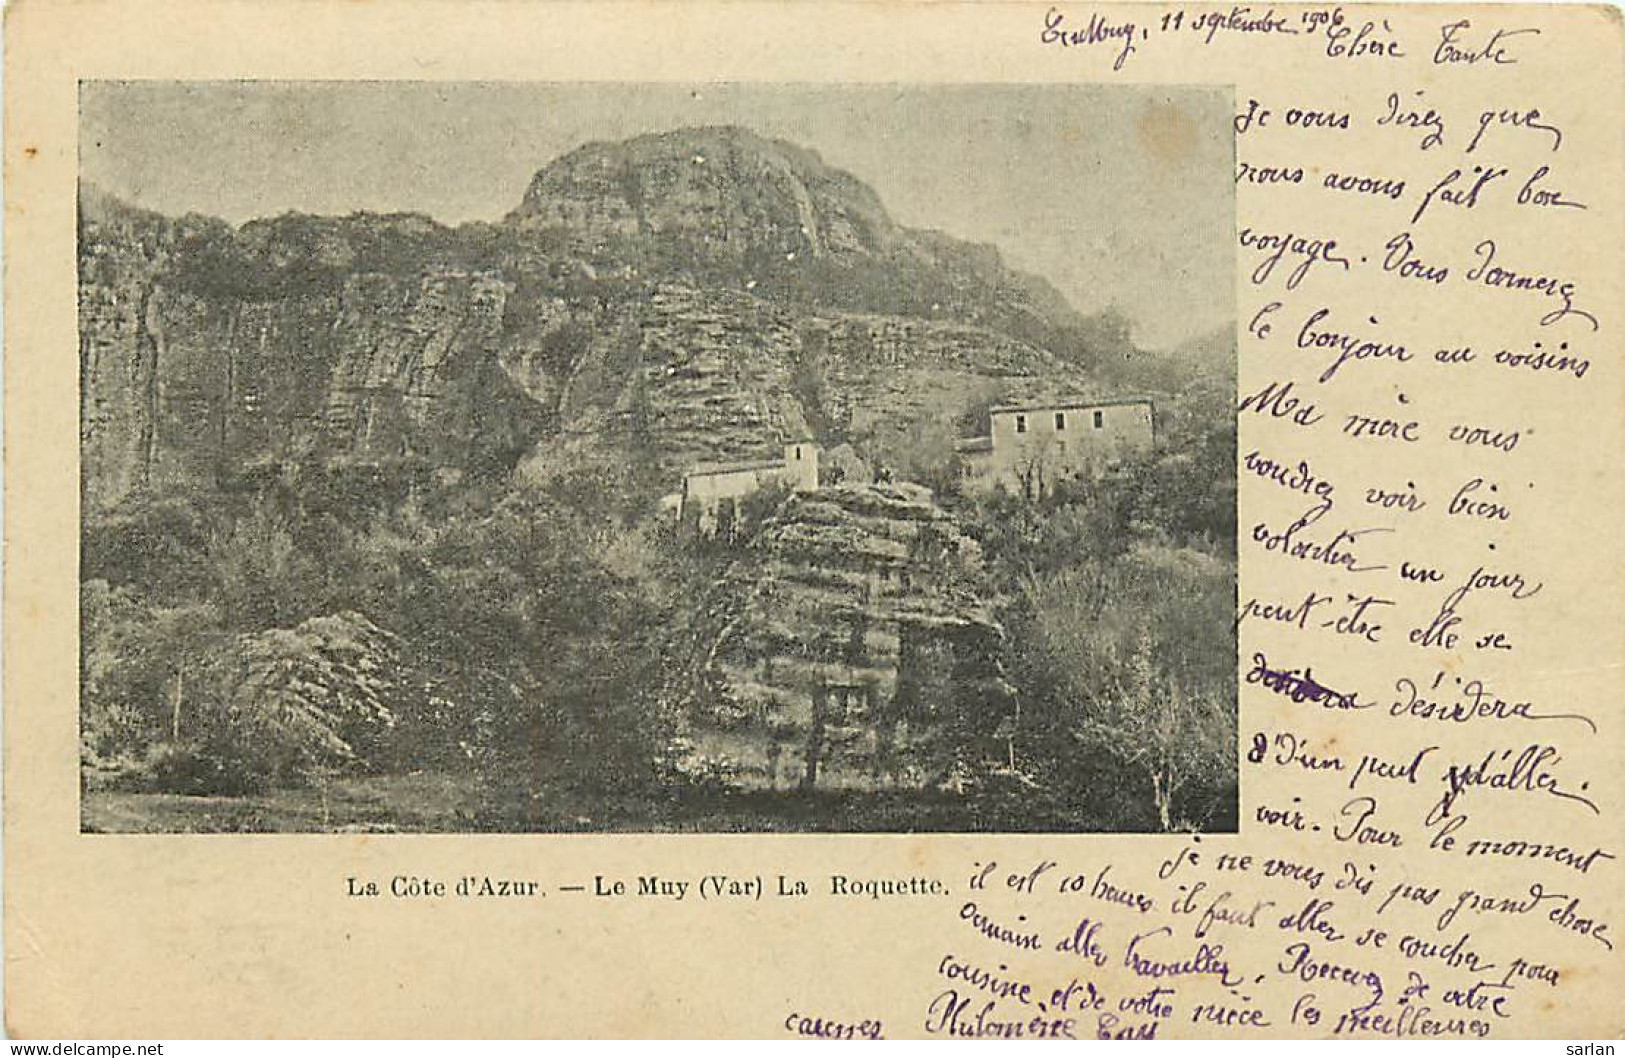 Le Muy, 11 septembre 1906
Chère Tante
Je vous direz que
nous avons fait bon
voyage. Vous donnerez
le bonjour au voisins
Ma mère vous
voudrez voir bien
volontier un jour
peut-être elle se
désidera
d'un peut d'allér
voir. Pour le moment
je ne vous dis pas grand chose
il est 10 heures il faut aller se coucher pour
demain aller travailler. Recevez de votre
cousine et de votre nièce les meilleures
caresses. Philomène
La Côte d'Azur. — Le Muy (Var) La Roquette.
delcampe.net
sarlan